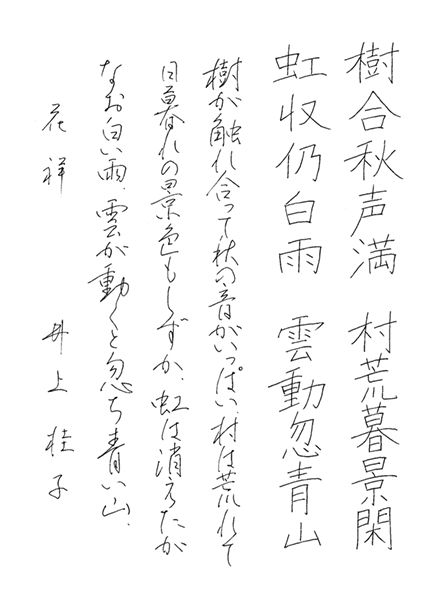 樹合秋声満　村荒暮景閑
虹収仍白雨　雲動忽青山
樹が触れ合って秋の音がいっぱい、村は荒れて
日暮れの景色もしずか、虹は消えたが
なお白い雨、雲が動くと忽ち青い山、
花祥　井上桂子